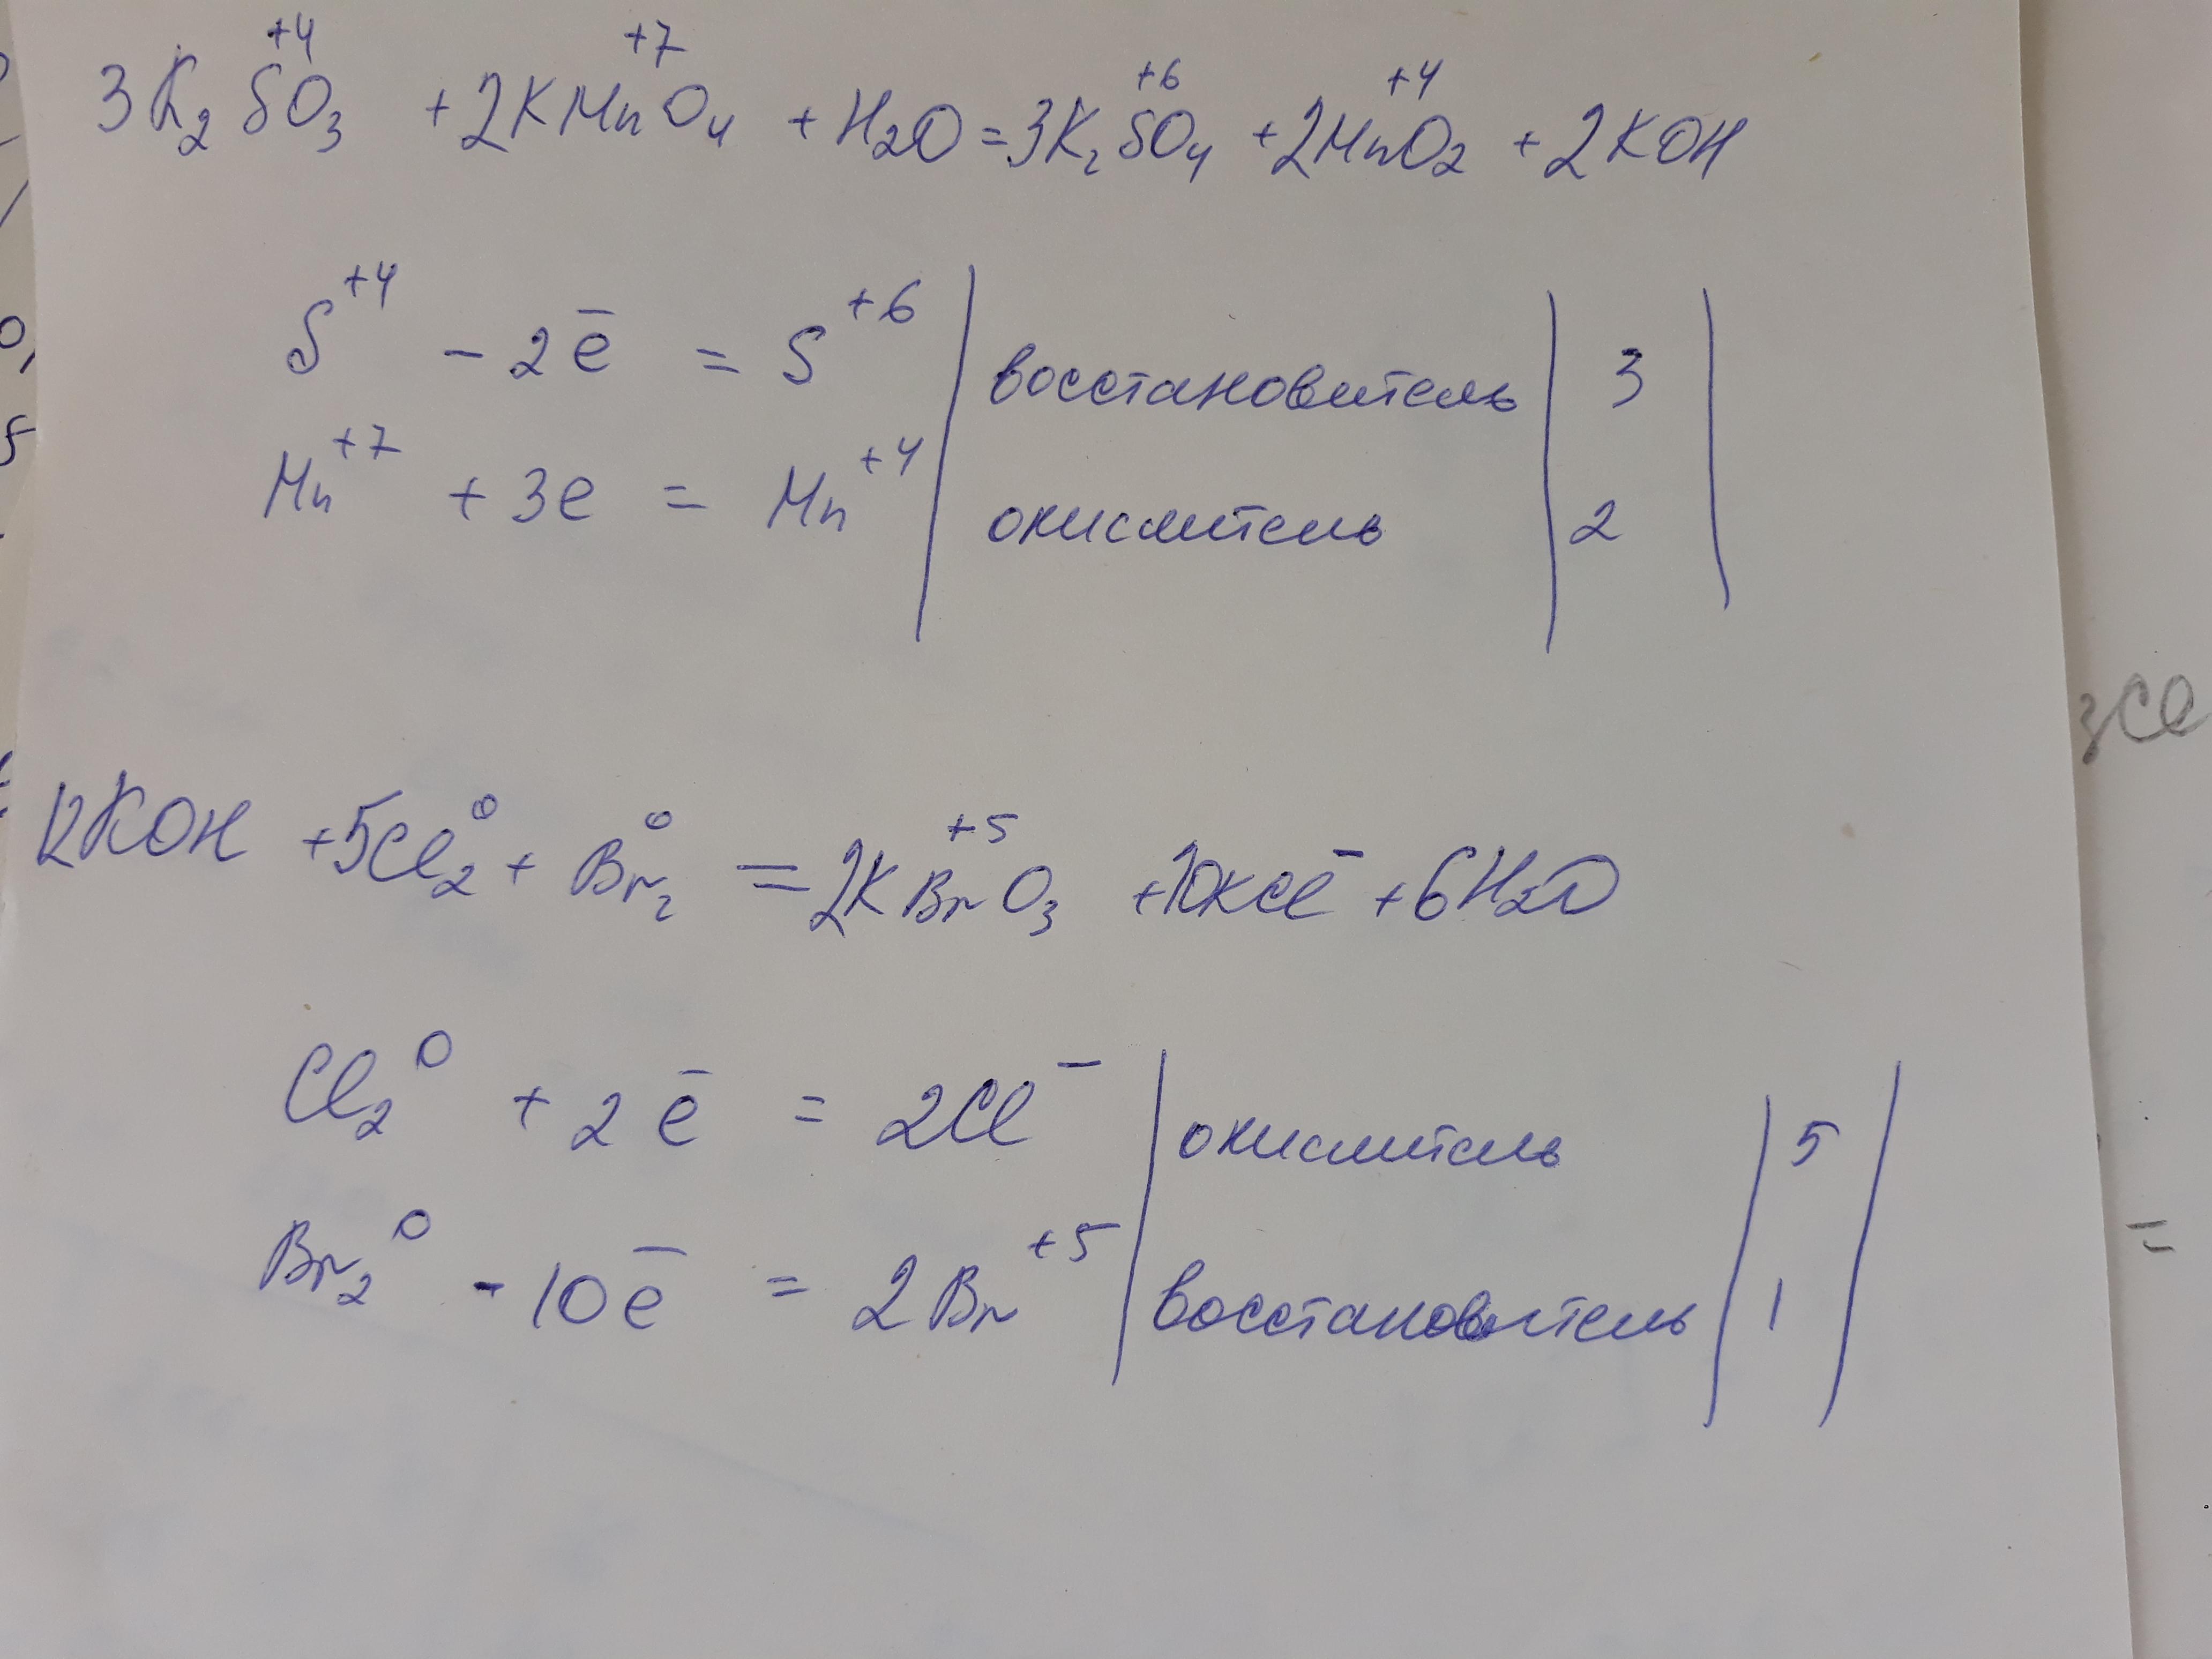 3K₂S⁺⁴O₃ + 2KMn⁺⁷O₄ + H₂O = 3K₂S⁺⁶O₄ + 2Mn⁺⁴O₂ + 2KOH
S⁺⁴ - 2ē = S⁺⁶ | восстановитель | 3 |
Mn⁺⁷ + 3e = Mn⁺⁴ | окислитель | 2 |
3Cl
12KOH + 5Cl₂⁰ + Br₂⁰ = 2KBr⁺⁵O₃ + 10KCl⁻ + 6H₂O
Cl₂⁰ + 2ē = 2Cl⁻ | окислитель | 5 |
=
Br₂⁰ - 10ē = 2Br⁺⁵ | восстановитель | 1 |